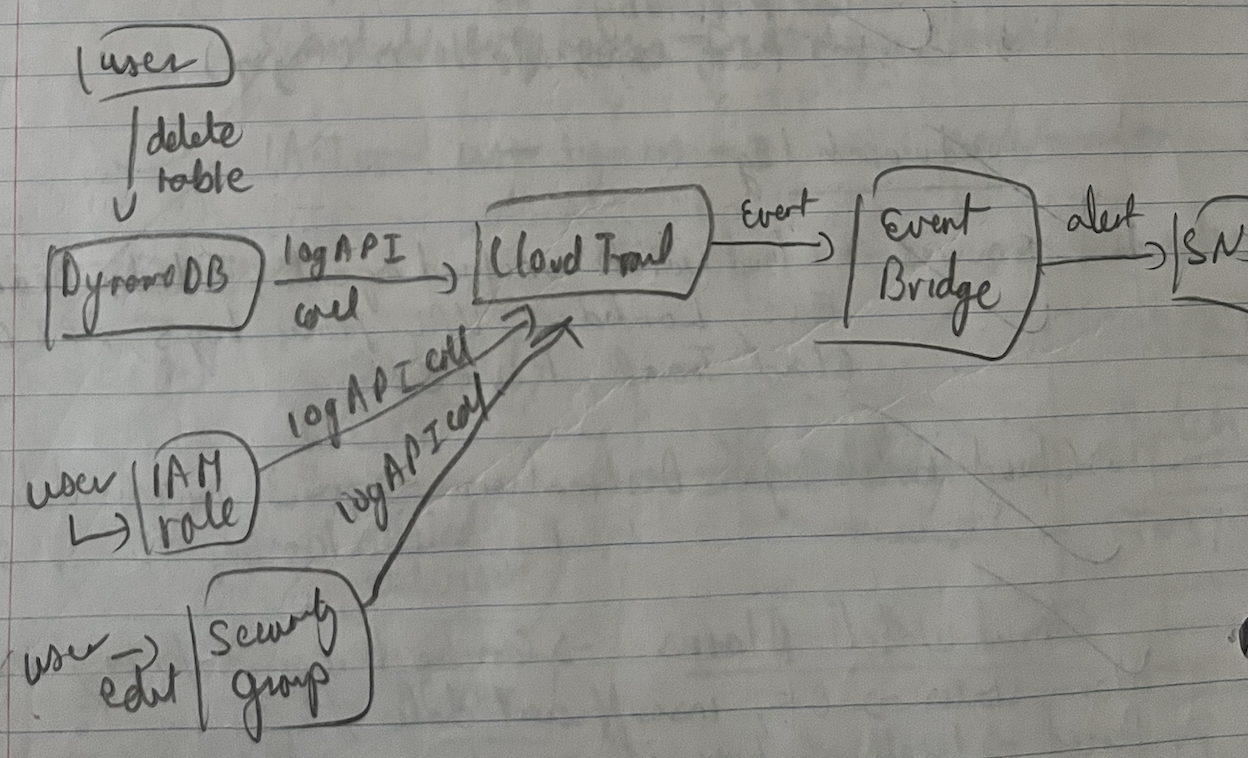 user
delete
table
DynamoDB
log API
call
Cloud Trail
Event
Event
Bridge
alert
SN
log API call
user
IAM
role
log API call
user
edit
Security
group